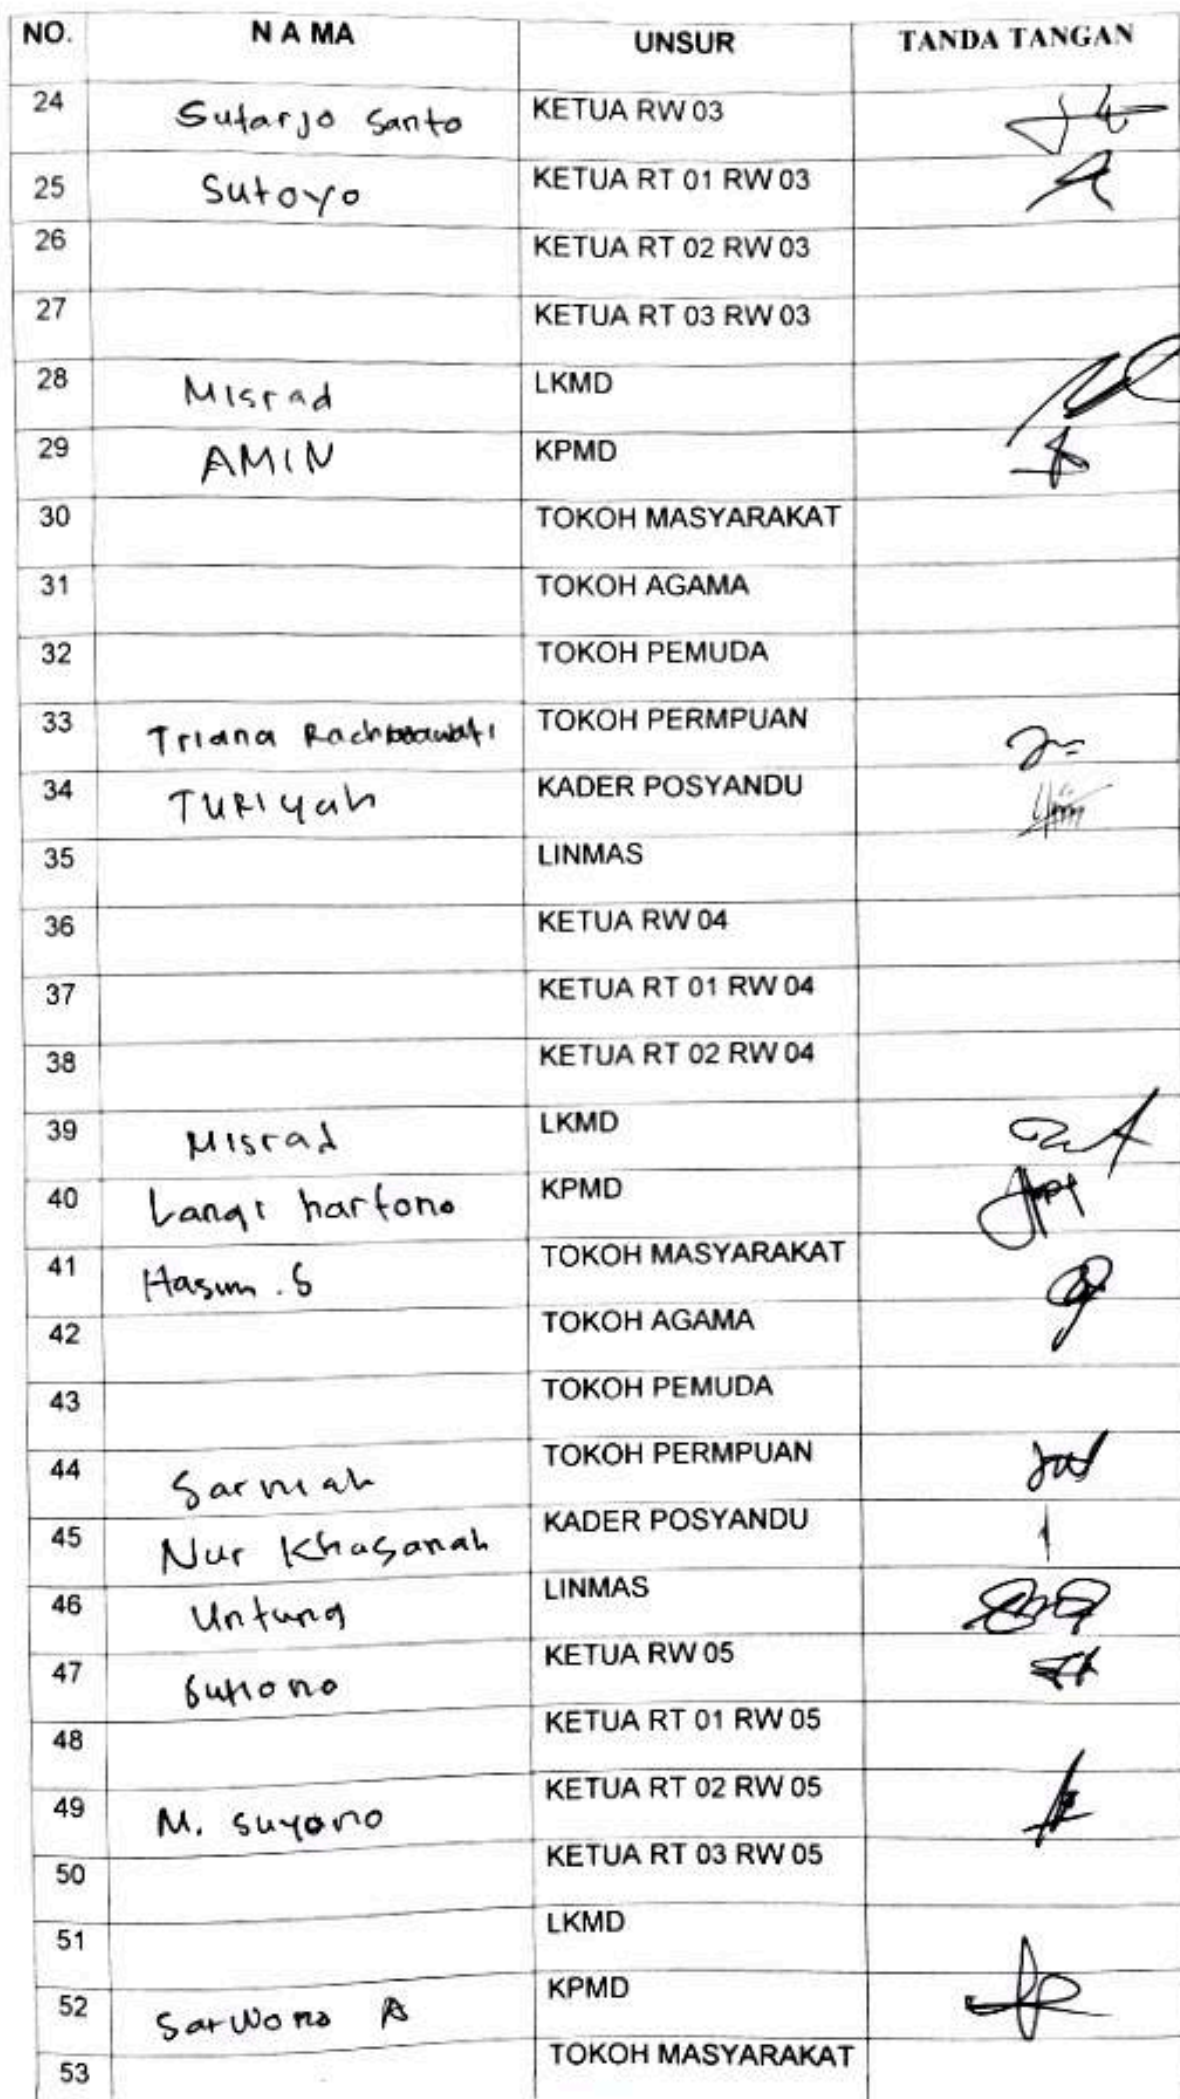 NO. N A MA UNSUR TANDA TANGAN
24 Sutarjo Santo KETUA RW 03
25 Sutoyo KETUA RT 01 RW 03
26 KETUA RT 02 RW 03
27 KETUA RT 03 RW 03
28 Misrad LKMD
29 AMIN KPMD
30 TOKOH MASYARAKAT
31 TOKOH AGAMA
32 TOKOH PEMUDA
33 Triana TOKOH PERMPUAN
34 TURIyah KADER POSYANDU
35 LINMAS
36 KETUA RW 04
37 KETUA RT 01 RW 04
38 KETUA RT 02 RW 04
39 Misrad LKMD
40 hartono KPMD
41 Hasim . S TOKOH MASYARAKAT
42 TOKOH AGAMA
43 TOKOH PEMUDA
44 Sarmiah TOKOH PERMPUAN
45 Nur Khasanah KADER POSYANDU
46 Untung LINMAS
47 KETUA RW 05
48 KETUA RT 01 RW 05
49 M. Suyono KETUA RT 02 RW 05
50 KETUA RT 03 RW 05
51 LKMD
52 Sarwono A KPMD
53 TOKOH MASYARAKAT